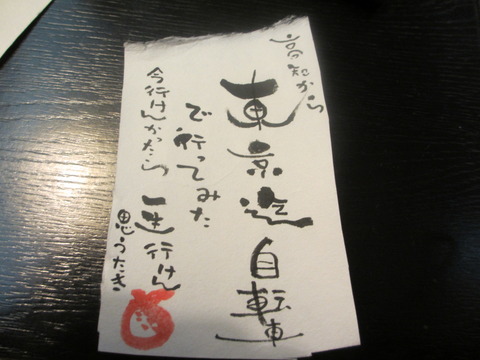 高知から
東京迄自転車
で行ってみた
今行けんかったら一生行けん
思うたき